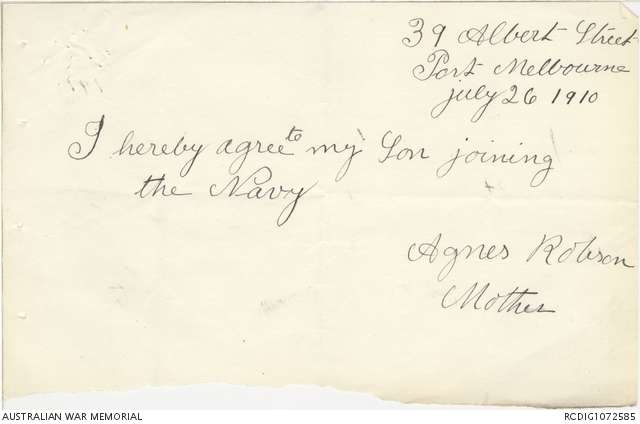 39 Albert Street
Port Melbourne
July 26 1910
I hereby agree to my Son joining
the Navy
Agnes Robson
Mother
AUSTRALIAN WAR MEMORIAL
RCDIG1072585